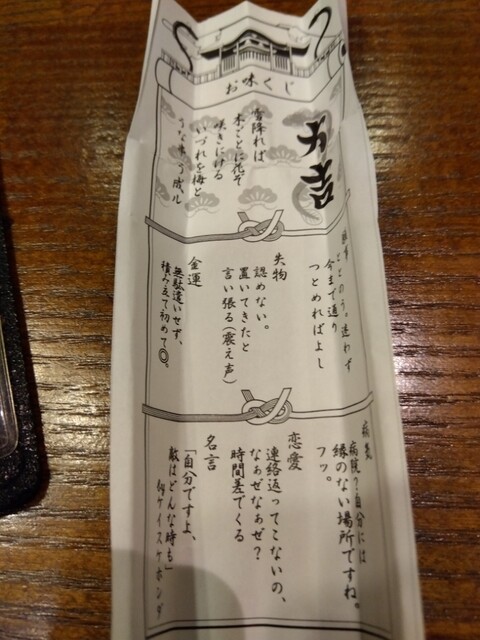 お味くじ
大吉
雪降れば
木ごとに花ぞ
咲きにける
いづれを梅と
ととのう。迷わず
今まで通り
つとめればよし
失物
認めない。
置いてきたと
言い張る(震え声)
金運
無駄遣いせず、
積み立て初めて◎。
病気
病院？自分には
縁のない場所ですね。
フッ。
恋愛
連絡返ってこないの、
なぁぜなぁぜ？
時間差でくる
名言
「自分ですよ、
敵はどんな時も」
byケイスケホンダ